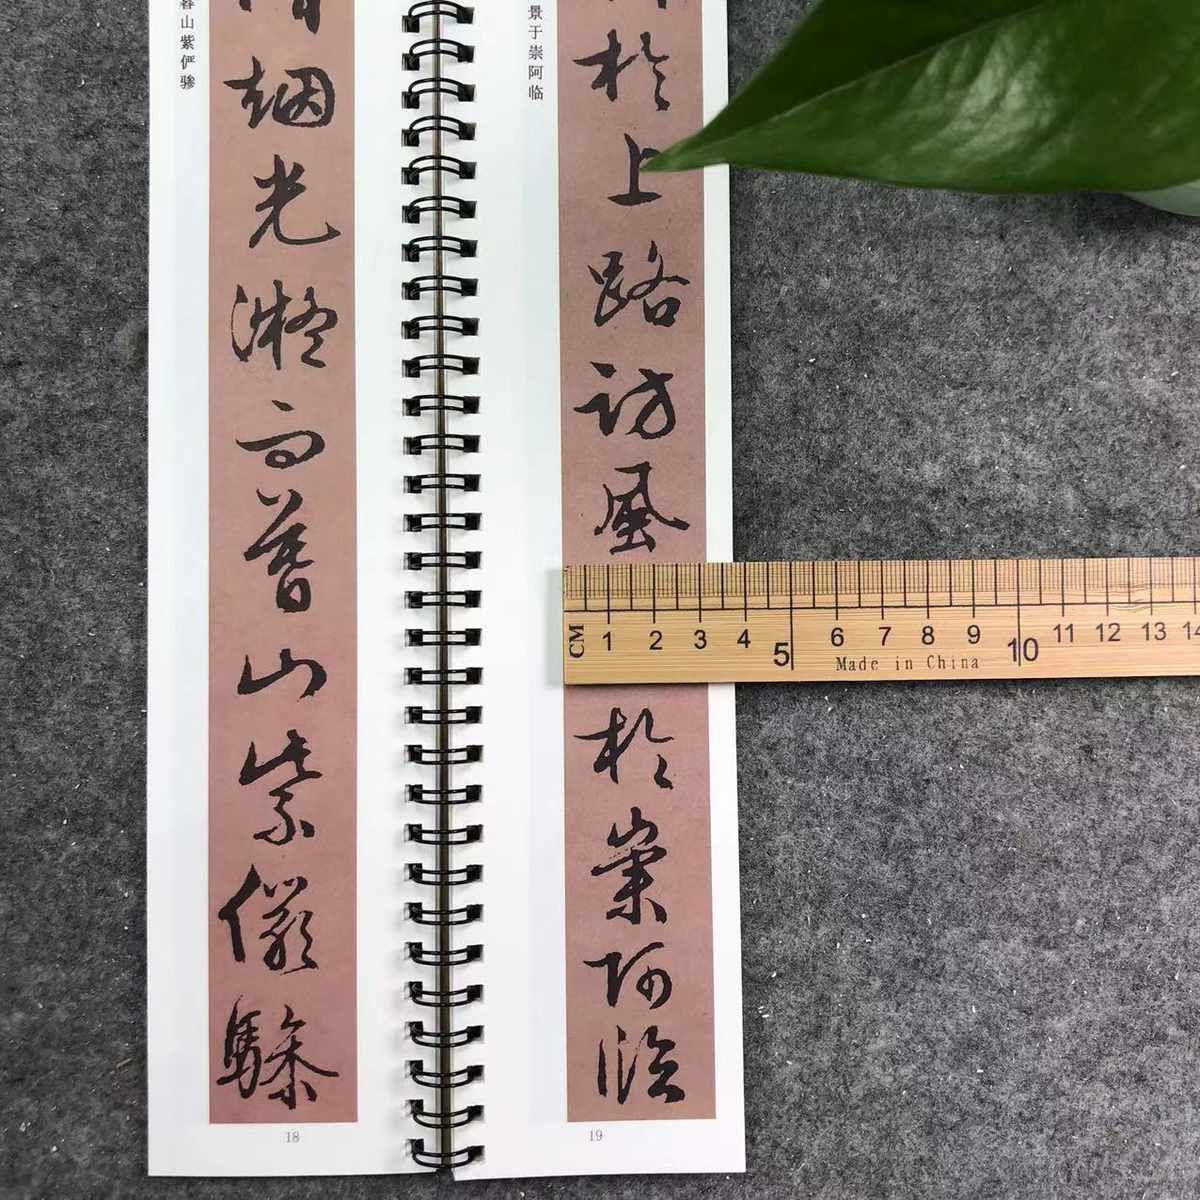 暮山紫俨骖
烟光凝而暮山紫儼驂
18
景于崇阿临
於上路訪風
於崇阿臨
19
CM 1 2 3 4 5 6 7 8 9 10 11 12 13
Made in China